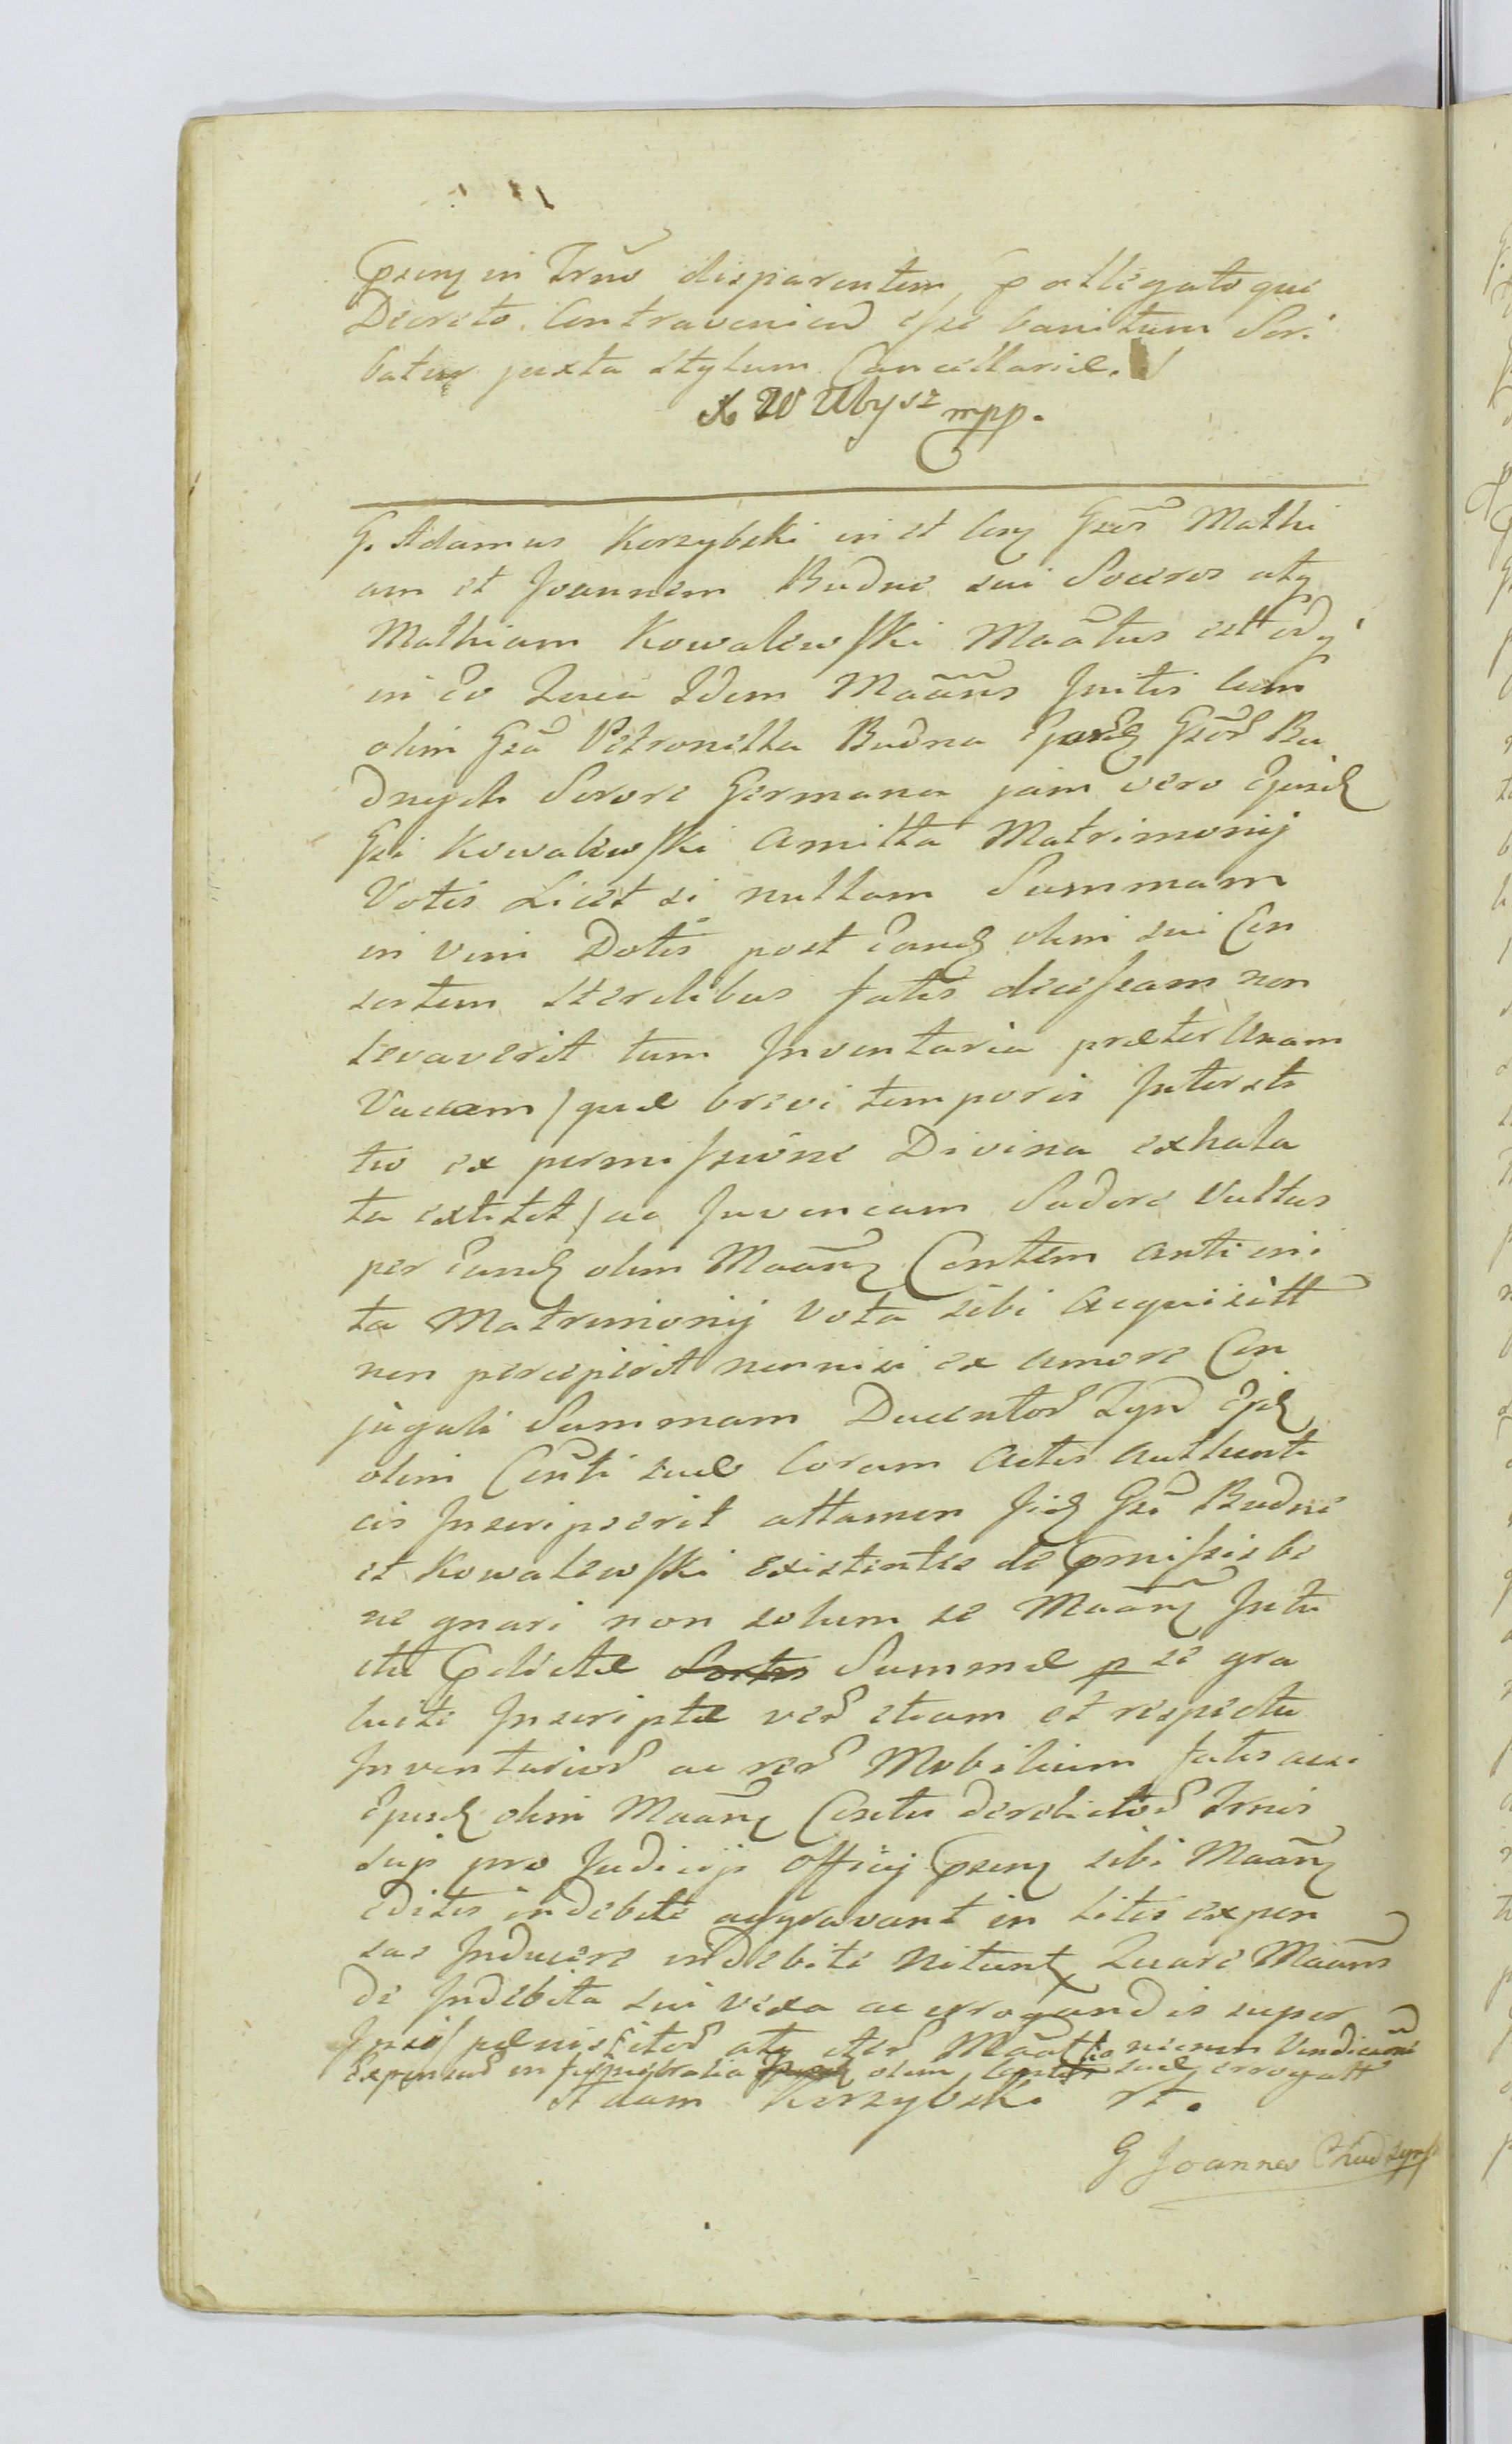 in Trno disparentem, allegatoque
Decreto Contraveniend esse banitum Scri
batur juxta stylum Cancellariæ.
X W Ubysz mpp.
G. Adamus Korzybski in et Gros Mathi
am et Joannem Budne sui Soceros atq
Mathiam Kowalewski Maatus est
in Eo Quia Idem Maans Initis cum
olim Gsa Petronella Budna Gror Bu
dnych Sorore Germana jam vero Ejusd
Gsi Kowalewski Amitta Matrimonij
Votis Licet si nullam Summam
in vim Dotis post Eand olim sui Con
sortem sterilibus fatis decessam non
levaverit tum Inventaria præter Unam
Vaccam / quæ brevi temporis Intersti
tio ex permissione Divina exhala
ta extitit / ac Juvencam Sudore Vultus
per Eand olim Maan Contem ante ini
ta Matrimonij vota sibi Acquisitt
non perceperit nonnisi ex amore Con
jugali Summam Ducentor Ejd
olim Conti suæ Coram Actis Authenti
cis Inscripserit attamen Jid Gsi Budne
et Kowalewski existentes de Pmissis be
ne gnari non solum se Maan Intu
itu Pdictæ Sortis Summæ p se gra
Inscriptæ ver etiam et respectu
Inventarior ac rer Mobilium fatis
Ejusd olim Maan Contis derelictor Trnis
sup pro Judicij Officij Psen sibi Maan
editis indebite aggravant in Litis expen
sas Inducere indebite Nitunt Quare Maans
de Indebita sui vexa ac errogandis super
atq Vindicaone
Expensar in olim suæ errogatt
Adam Korzybski
G Joannes